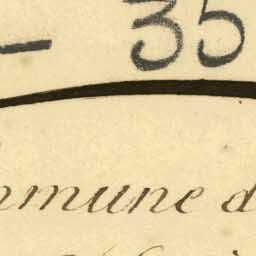 - 35
mmune d